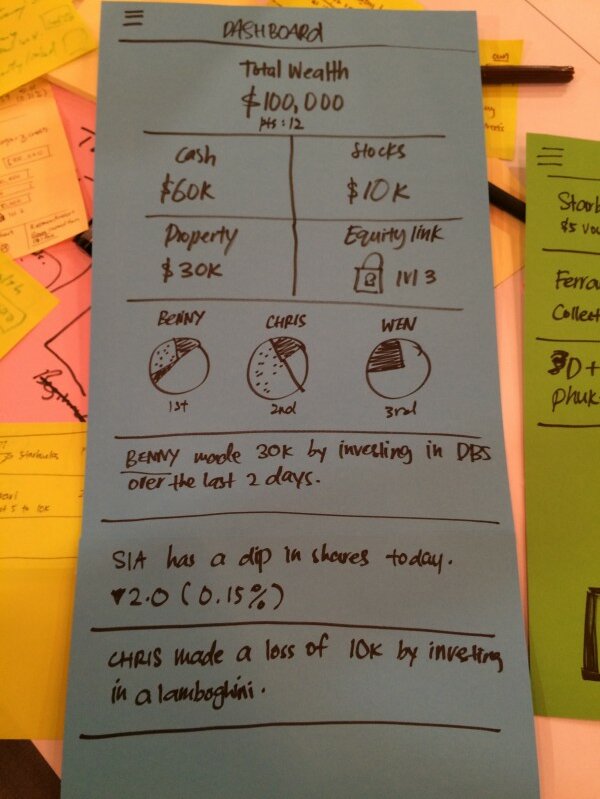 DASHBOARD
Total Wealth
$100,000
pts: 12
Cash
$60K
Stocks
$10K
Property
$30K
Equity link
lvl 3
BENNY
CHRIS
WEN
1st
2nd
3rd
BENNY made 30K by investing in DBS
over the last 2 days.
SIA has a dip in shares today.
▼2.0 (0.15%)
CHRIS made a loss of 10K by investing
in a lamboghini.
Starb
$5 Vou
Ferra
Collect
3D+
phuk